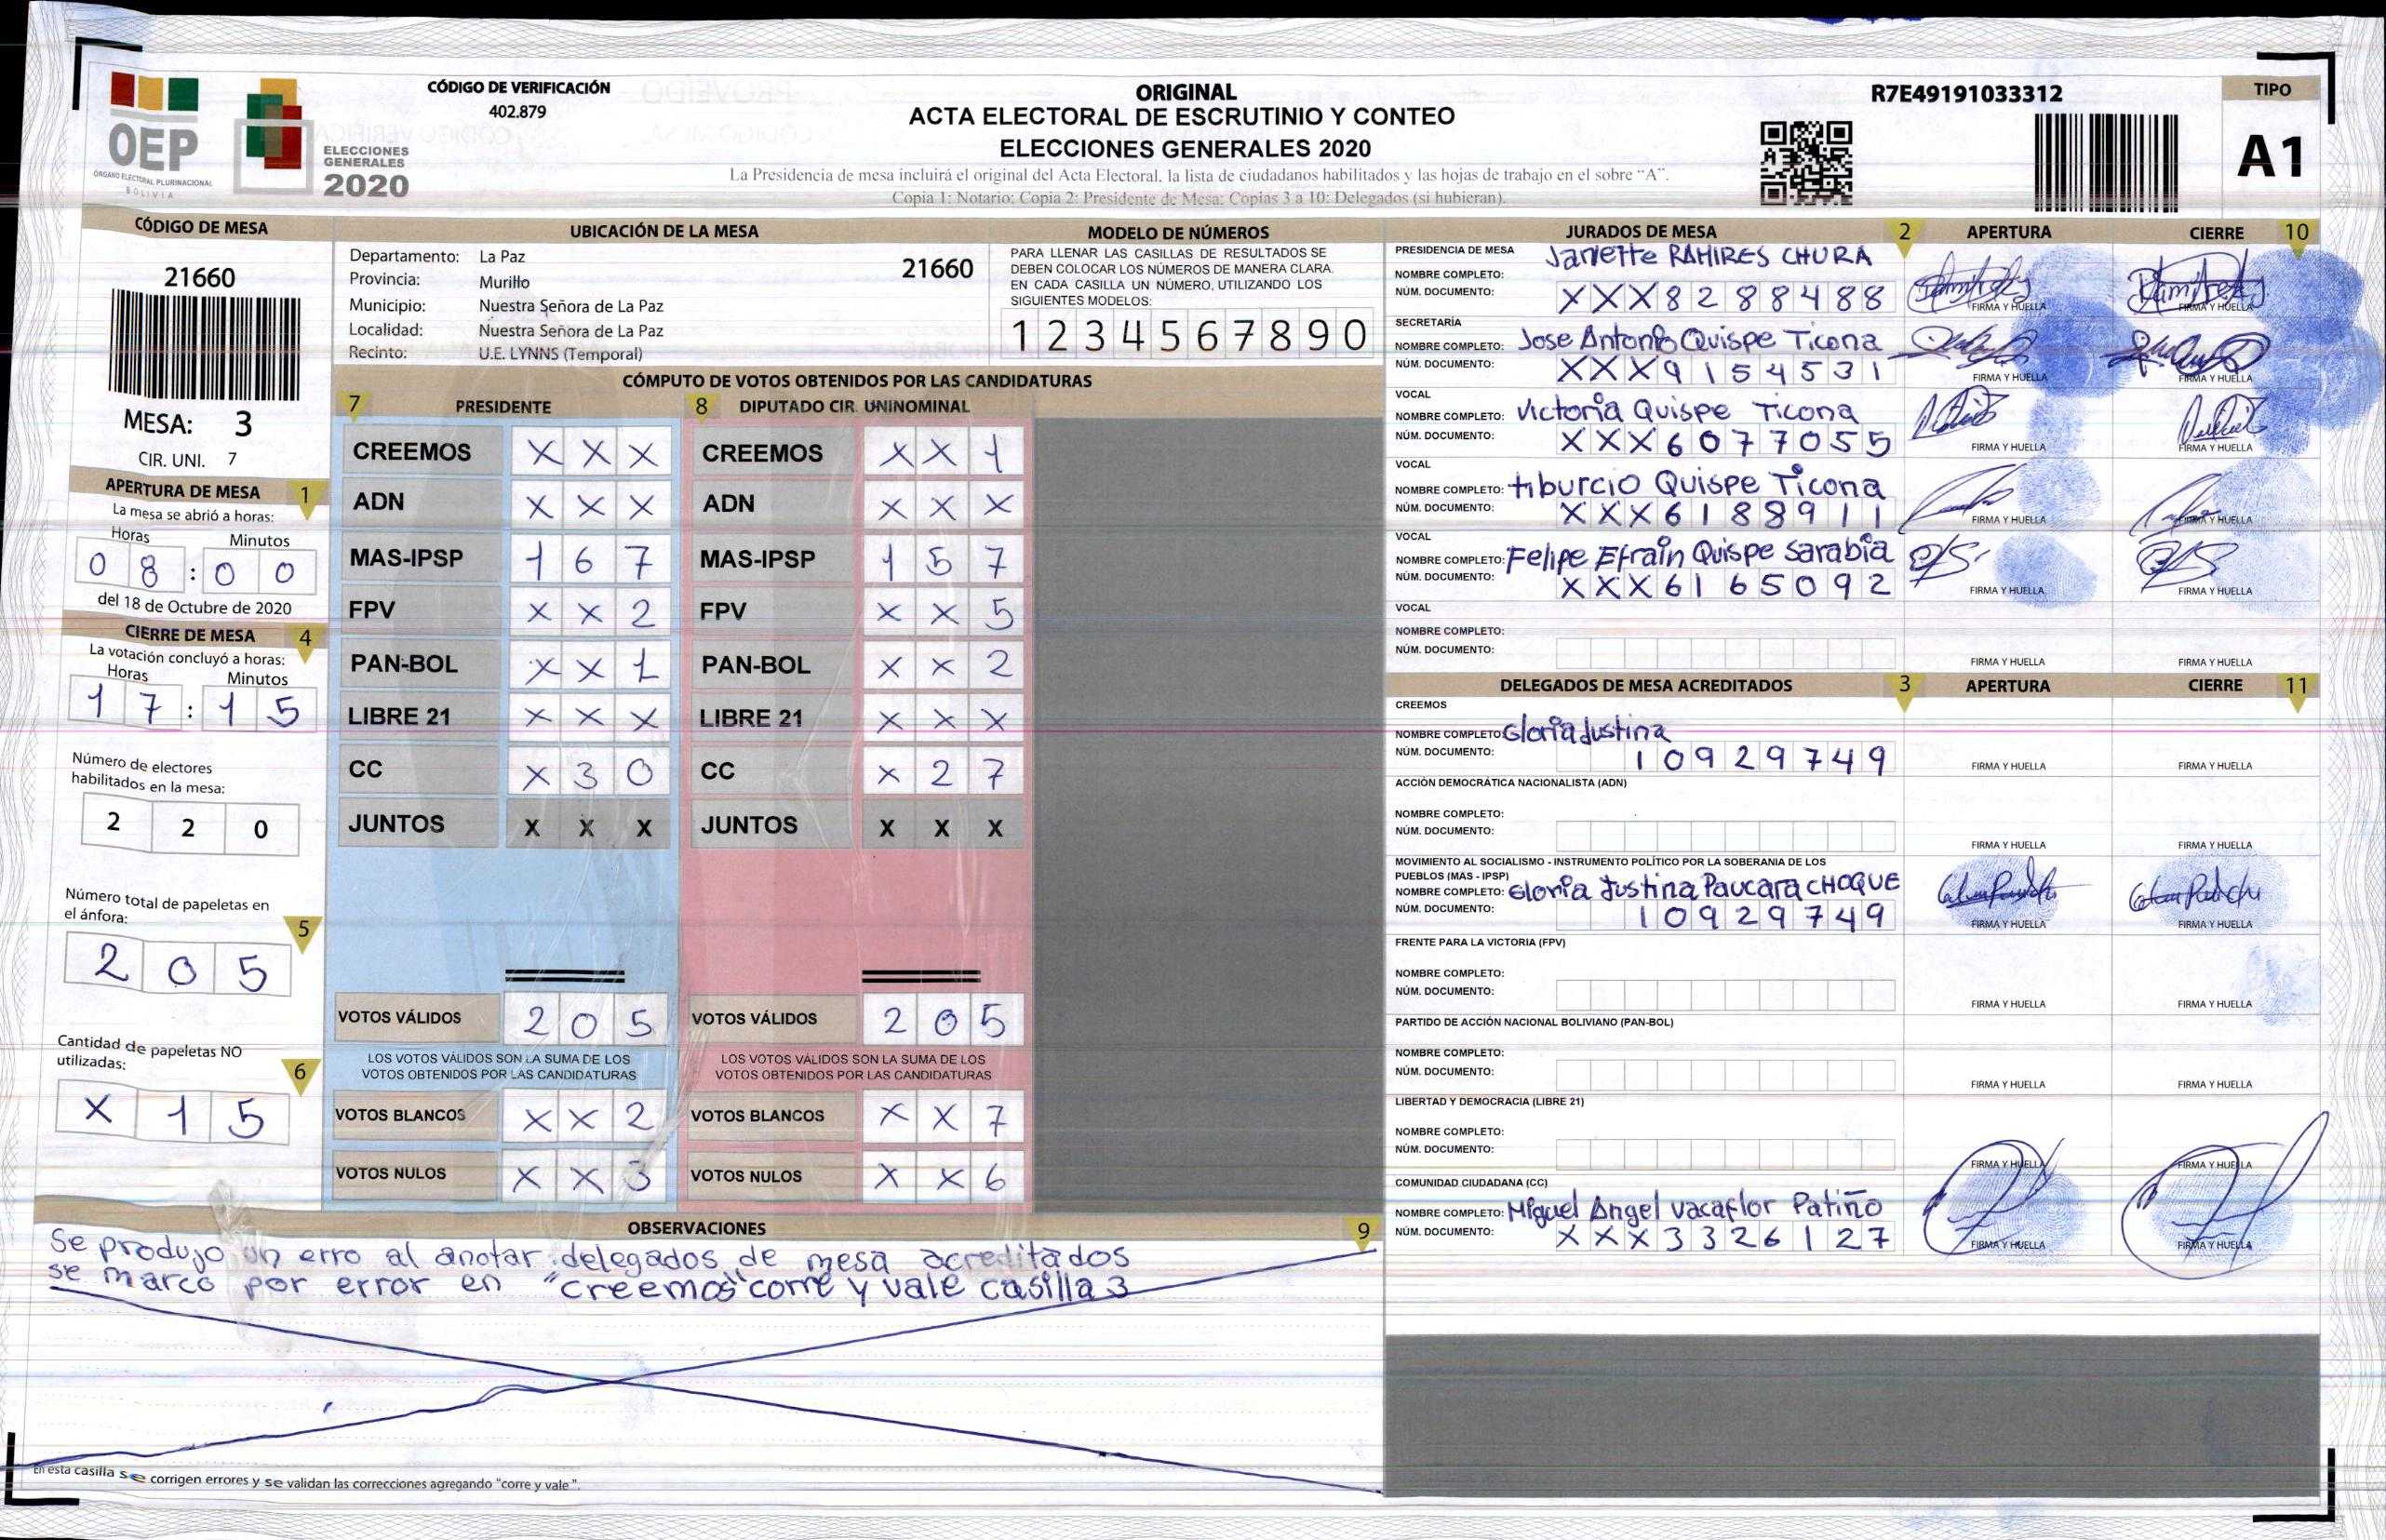 OEP
ÓRGANO ELECTORAL PLURINACIONAL
BOLIVIA
ELECCIONES
GENERALES
2020
CÓDIGO DE VERIFICACIÓN
402.879
ORIGINAL
ACTA ELECTORAL DE ESCRUTINIO Y CONTEO
ELECCIONES GENERALES 2020
La Presidencia de mesa incluirá el original del Acta Electoral, la lista de ciudadanos habilitados y las hojas de trabajo en el sobre "A".
Copia 1: Notario; Copia 2: Presidente de Mesa; Copias 3 a 10: Delegados (si hubieran).
R7E49191033312
TIPO
A1
CÓDIGO DE MESA
21660
MESA: 3
CIR. UNI. 7
APERTURA DE MESA 1
La mesa se abrió a horas:
Horas Minutos
0 8 : 0 0
del 18 de Octubre de 2020
CIERRE DE MESA 4
La votación concluyó a horas:
Horas Minutos
1 7 : 1 5
Número de electores
habilitados en la mesa:
2 2 0
Número total de papeletas en
el ánfora: 5
2 0 5
Cantidad de papeletas NO
utilizadas: 6
X 1 5
UBICACIÓN DE LA MESA
Departamento: La Paz
21660
Provincia: Murillo
Municipio: Nuestra Señora de La Paz
Localidad: Nuestra Señora de La Paz
Recinto: U.E. LYNNS (Temporal)
MODELO DE NÚMEROS
PARA LLENAR LAS CASILLAS DE RESULTADOS SE
DEBEN COLOCAR LOS NÚMEROS DE MANERA CLARA.
EN CADA CASILLA UN NÚMERO, UTILIZANDO LOS
SIGUIENTES MODELOS:
1 2 3 4 5 6 7 8 9 0
CÓMPUTO DE VOTOS OBTENIDOS POR LAS CANDIDATURAS
7 PRESIDENTE 8 DIPUTADO CIR. UNINOMINAL
CREEMOS X X X CREEMOS X X 1
ADN X X X ADN X X X
MAS-IPSP 1 6 7 MAS-IPSP 1 5 7
FPV X X 2 FPV X X 5
PAN-BOL X X 1 PAN-BOL X X 2
LIBRE 21 X X X LIBRE 21 X X X
CC X 3 0 CC X 2 7
JUNTOS X X X JUNTOS X X X
VOTOS VÁLIDOS 2 0 5 VOTOS VÁLIDOS 2 0 5
LOS VOTOS VÁLIDOS SON LA SUMA DE LOS LOS VOTOS VÁLIDOS SON LA SUMA DE LOS
VOTOS OBTENIDOS POR LAS CANDIDATURAS VOTOS OBTENIDOS POR LAS CANDIDATURAS
VOTOS BLANCOS X X 2 VOTOS BLANCOS X X 7
VOTOS NULOS X X 3 VOTOS NULOS X X 6
OBSERVACIONES 9
Se produjo un erro al anotar delegados de mesa acreditados
se marco por error en "creemos" corre y vale casilla 3
En esta casilla se corrigen errores y se validan las correcciones agregando "corre y vale".
JURADOS DE MESA 2 APERTURA CIERRE 10
PRESIDENCIA DE MESA
NOMBRE COMPLETO: Janette RAMIRES CHURA
NÚM. DOCUMENTO: X X X 8 2 8 8 4 8 8
FIRMA Y HUELLA FIRMA Y HUELLA
SECRETARÍA
NOMBRE COMPLETO: Jose Antonio Quispe Ticona
NÚM. DOCUMENTO: X X X 9 1 5 4 5 3 1
FIRMA Y HUELLA FIRMA Y HUELLA
VOCAL
NOMBRE COMPLETO: Victoria Quispe Ticona
NÚM. DOCUMENTO: X X X 6 0 7 7 0 5 5
FIRMA Y HUELLA FIRMA Y HUELLA
VOCAL
NOMBRE COMPLETO: tiburcio Quispe Ticona
NÚM. DOCUMENTO: X X X 6 1 8 8 9 1 1
FIRMA Y HUELLA FIRMA Y HUELLA
VOCAL
NOMBRE COMPLETO: Felipe Efrain Quispe Sarabia
NÚM. DOCUMENTO: X X X 6 1 6 5 0 9 2
FIRMA Y HUELLA FIRMA Y HUELLA
VOCAL
NOMBRE COMPLETO:
NÚM. DOCUMENTO:
FIRMA Y HUELLA FIRMA Y HUELLA
DELEGADOS DE MESA ACREDITADOS 3 APERTURA CIERRE 11
CREEMOS
NOMBRE COMPLETO: Gloria Justina
NÚM. DOCUMENTO: 1 0 9 2 9 7 4 9
FIRMA Y HUELLA FIRMA Y HUELLA
ACCIÓN DEMOCRÁTICA NACIONALISTA (ADN)
NOMBRE COMPLETO:
NÚM. DOCUMENTO:
FIRMA Y HUELLA FIRMA Y HUELLA
MOVIMIENTO AL SOCIALISMO - INSTRUMENTO POLÍTICO POR LA SOBERANIA DE LOS
PUEBLOS (MAS - IPSP)
NOMBRE COMPLETO: Gloria Justina Paucara CHOQUE
NÚM. DOCUMENTO: 1 0 9 2 9 7 4 9
FIRMA Y HUELLA FIRMA Y HUELLA
FRENTE PARA LA VICTORIA (FPV)
NOMBRE COMPLETO:
NÚM. DOCUMENTO:
FIRMA Y HUELLA FIRMA Y HUELLA
PARTIDO DE ACCIÓN NACIONAL BOLIVIANO (PAN-BOL)
NOMBRE COMPLETO:
NÚM. DOCUMENTO:
FIRMA Y HUELLA FIRMA Y HUELLA
LIBERTAD Y DEMOCRACIA (LIBRE 21)
NOMBRE COMPLETO:
NÚM. DOCUMENTO:
FIRMA Y HUELLA FIRMA Y HUELLA
COMUNIDAD CIUDADANA (CC)
NOMBRE COMPLETO: Miguel Angel vacaflor Patiño
NÚM. DOCUMENTO: X X X 3 3 2 6 1 2 7
FIRMA Y HUELLA FIRMA Y HUELLA